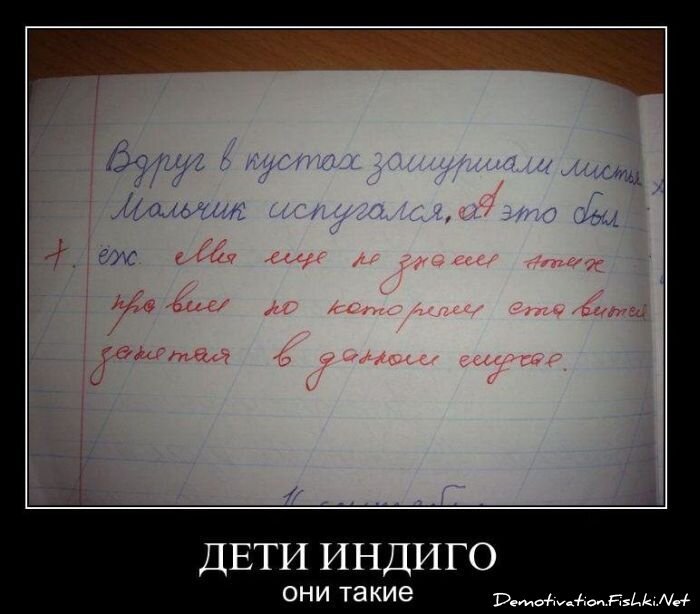 Вдруг в кустах зашуршали листья
Мальчик испугался, а А это был
ёж. Мы еще не знаем этих
правил по которым ставится
запятая в данном случае.
ДЕТИ ИНДИГО
они такие
Demotivation.Fishki.Net